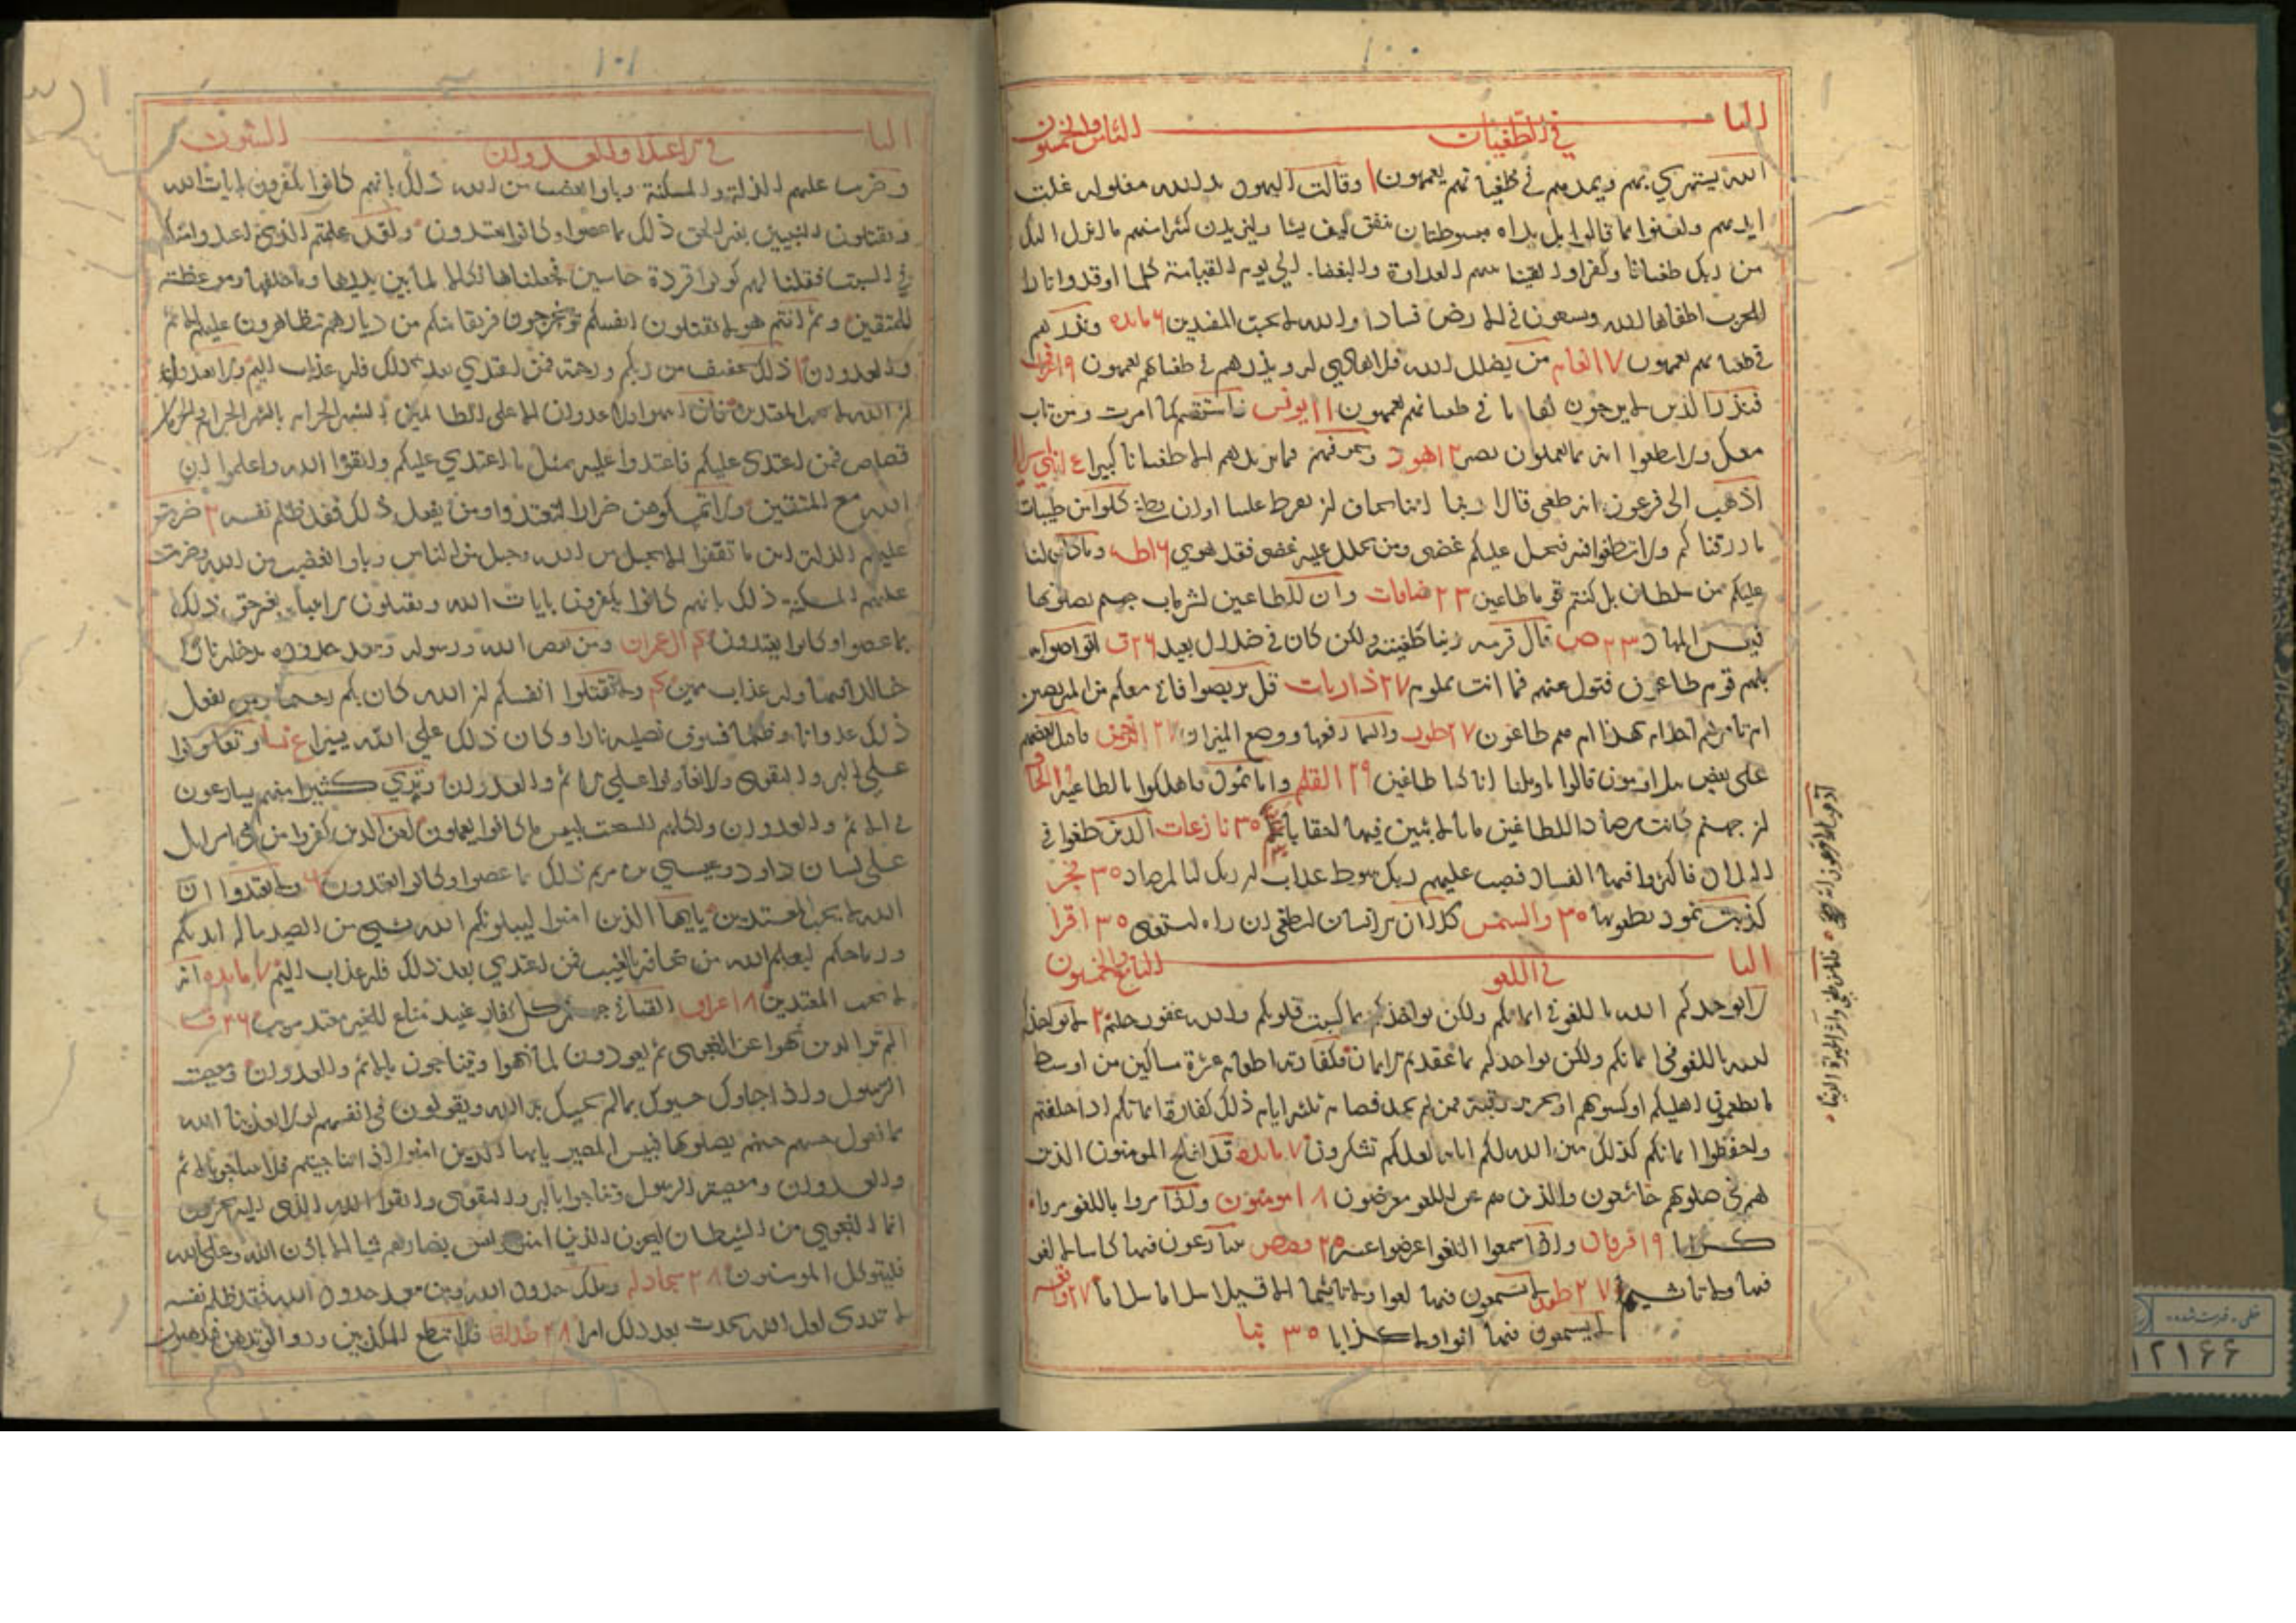 ١٠٠
البا
الثامن والخمسون
في الطغيان
الله يستهزئ بهم ويمدهم في طغيانهم يعمهون ١ وقالت اليهود يد الله مغلوله غلت
ايديهم ولعنوا بما قالوا بل يداه مبسوطتان ينفق كيف يشا وليزيدن كثيرا منهم ما انزل اليك
من ربك طغيانا وكفرا والقينا بينهم العداوة والبغضا الي يوم القيامة كلما اوقدوا نارا
للحرب اطفاها الله ويسعون في الارض فسادا والله لا يحب المفسدين ٦ مائده ونذرهم
في طغيانهم يعمهون ٧ انعام من يضلل الله فلا هادي له ويذرهم في طغيانهم يعمهون ٩ اعراف
فنذر الذين لا يرجون لقاءنا في طغيانهم يعمهون ١١ يونس فاستقم كما امرت ومن تاب
معك ولا تطغوا انه بما تعملون بصير ١٢ هود ونخوفهم فما يزيدهم الا طغيانا كبيرا
اذهب الى فرعون انه طغى قالا ربنا اننا نخاف ان يفرط علينا او ان يطغى كلوا من طيبات
ما رزقناكم ولا تطغوا فيه فيحل عليكم غضبي ومن يحلل عليه غضبي فقد هوي ١٦ طه وما كان لنا
عليكم من سلطان بل كنتم قوما طاغين ٢٣ صافات وان للطاغين لشر ماب جهنم يصلونها
فبئس المهاد ٢٣ ص قال قرينه ربنا ما اطغيته ولكن كان في ضلال بعيد ٢٦ ق اتواصوا به
بل هم قوم طاغون فتول عنهم فما انت بملوم ٢٧ ذاريات قل تربصوا فاني معكم من المتربصين
ام تامرهم احلامهم بهذا ام هم قوم طاغون ٢٧ طور والسما رفعها ووضع الميزان ٢٧ الرحمن فاقبل بعضهم
على بعض يتلاومون قالوا يا ويلنا انا كنا طاغين ٢٩ القلم واما ثمود فاهلكوا بالطاغية ٢٩ الحاقه
ان جهنم كانت مرصادا للطاغين مابا لابثين فيها احقابا ٣٠ نازعات الذين طغوا في
البلاد فاكثروا فيها الفساد فصب عليهم ربك سوط عذاب ان ربك لبالمرصاد ٣٠ فجر
كذبت ثمود بطغويها ٣٠ والشمس كلا ان الانسان ليطغى ان راه استغنى ٣٠ اقرا
البا
التاسع والخمسون
في اللغو
لا يواخذكم الله باللغو في ايمانكم ولكن يواخذكم بما كسبت قلوبكم والله غفور حليم ٢ لا يواخذكم
الله باللغو في ايمانكم ولكن يواخذكم بما عقدتم الايمان فكفارته اطعام عشرة مساكين من اوسط
ما تطعمون اهليكم او كسوتهم او تحرير رقبة فمن لم يجد فصيام ثلثه ايام ذلك كفارة ايمانكم اذا حلفتم
واحفظوا ايمانكم كذلك يبين الله لكم اياته لعلكم تشكرون ٧ مائده قد افلح المومنون الذين
هم في صلوتهم خاشعون والذين هم عن اللغو معرضون ١٨ مومنون واذا مروا باللغو مروا
كراما ١٩ فرقان واذا سمعوا اللغو اعرضوا عنه ٢٠ قصص يتنازعون فيها كاسا لا لغو
فيها ولا تاثيم ٢٧ طور لا يسمعون فيها لغوا ولا تاثيما الا قيلا سلاما سلاما ٢٧ واقعه
لا يسمعون فيها لغوا ولا كذابا ٣٠ نبا
١٠١
البا
الستون
في الاعتدا والعدوان
وضربت عليهم الذلة والمسكنة وباوا بغضب من الله ذلك بانهم كانوا يكفرون بايات الله
ويقتلون النبيين بغير الحق ذلك بما عصوا وكانوا يعتدون ولقد علمتم الذين اعتدوا منكم
في السبت فقلنا لهم كونوا قردة خاسئين فجعلناها نكالا لما بين يديها وما خلفها وموعظة
للمتقين ثم انتم هولا تقتلون انفسكم وتخرجون فريقا منكم من ديارهم تظاهرون عليهم بالاثم
والعدوان ذلك تخفيف من ربكم ورحمة فمن اعتدي بعد ذلك فله عذاب اليم ولا تعتدوا
ان الله لا يحب المعتدين فان انتهوا فلا عدوان الا على الظالمين الشهر الحرام بالشهر الحرام والحرمات
قصاص فمن اعتدى عليكم فاعتدوا عليه بمثل ما اعتدي عليكم واتقوا الله واعلموا ان
الله مع المتقين ولا تمسكوهن ضرارا لتعتدوا ومن يفعل ذلك فقد ظلم نفسه ٢ ضربت
عليهم الذلة اين ما ثقفوا الا بحبل من الله وحبل من الناس وباوا بغضب من الله وضربت
عليهم المسكنة ذلك بانهم كانوا يكفرون بايات الله ويقتلون الانبيا بغير حق ذلك
بما عصوا وكانوا يعتدون ٤ ال عمران ومن يعص الله ورسوله ويتعد حدوده يدخله نارا
خالدا فيها وله عذاب مهين ٤ ولا تقتلوا انفسكم ان الله كان بكم رحيما ومن يفعل
ذلك عدوانا وظلما فسوف نصليه نارا وكان ذلك علي الله يسيرا نسا وتعاونوا
على البر والتقوى ولا تعاونوا علي الاثم والعدوان وتري كثيرا منهم يسارعون
في الاثم والعدوان واكلهم السحت لبيس ما كانوا يعملون لعن الذين كفروا من بني اسرايل
على لسان داود وعيسي بن مريم ذلك بما عصوا وكانوا يعتدون ٦ ولا تعتدوا ان
الله لا يحب المعتدين يا ايها الذين امنوا ليبلونكم الله بشي من الصيد تناله ايديكم
ورماحكم ليعلم الله من يخافه بالغيب فمن اعتدي بعد ذلك فله عذاب اليم ٧ مائده انه
لا يحب المعتدين ٨ اعراف القيا في جهنم كل كفار عنيد مناع للخير معتد مريب ٢٦ ق
الم تر الى الذين نهوا عن النجوى ثم يعودون لما نهوا عنه ويتناجون بالاثم والعدوان ومعصيت
الرسول واذا جاوك حيوك بما لم يحيك به الله ويقولون في انفسهم لولا يعذبنا الله
بما نقول حسبهم جهنم يصلونها فبيس المصير يا ايها الذين امنوا اذا تناجيتم فلا تتناجوا بالاثم
والعدوان ومعصيت الرسول وتناجوا بالبر والتقوى واتقوا الله الذي اليه تحشرون
انما النجوي من الشيطان ليحزن الذين امنوا وليس بضارهم شيا الا باذن الله وعلى الله
فليتوكل المومنون ٢٨ مجادله وتلك حدود الله ومن يتعد حدود الله فقد ظلم نفسه
لا تدري لعل الله يحدث بعد ذلك امرا ٢٨ طلاق فلا تطع المكذبين ودوا لو تدهن فيدهنون
١٢١۶۶